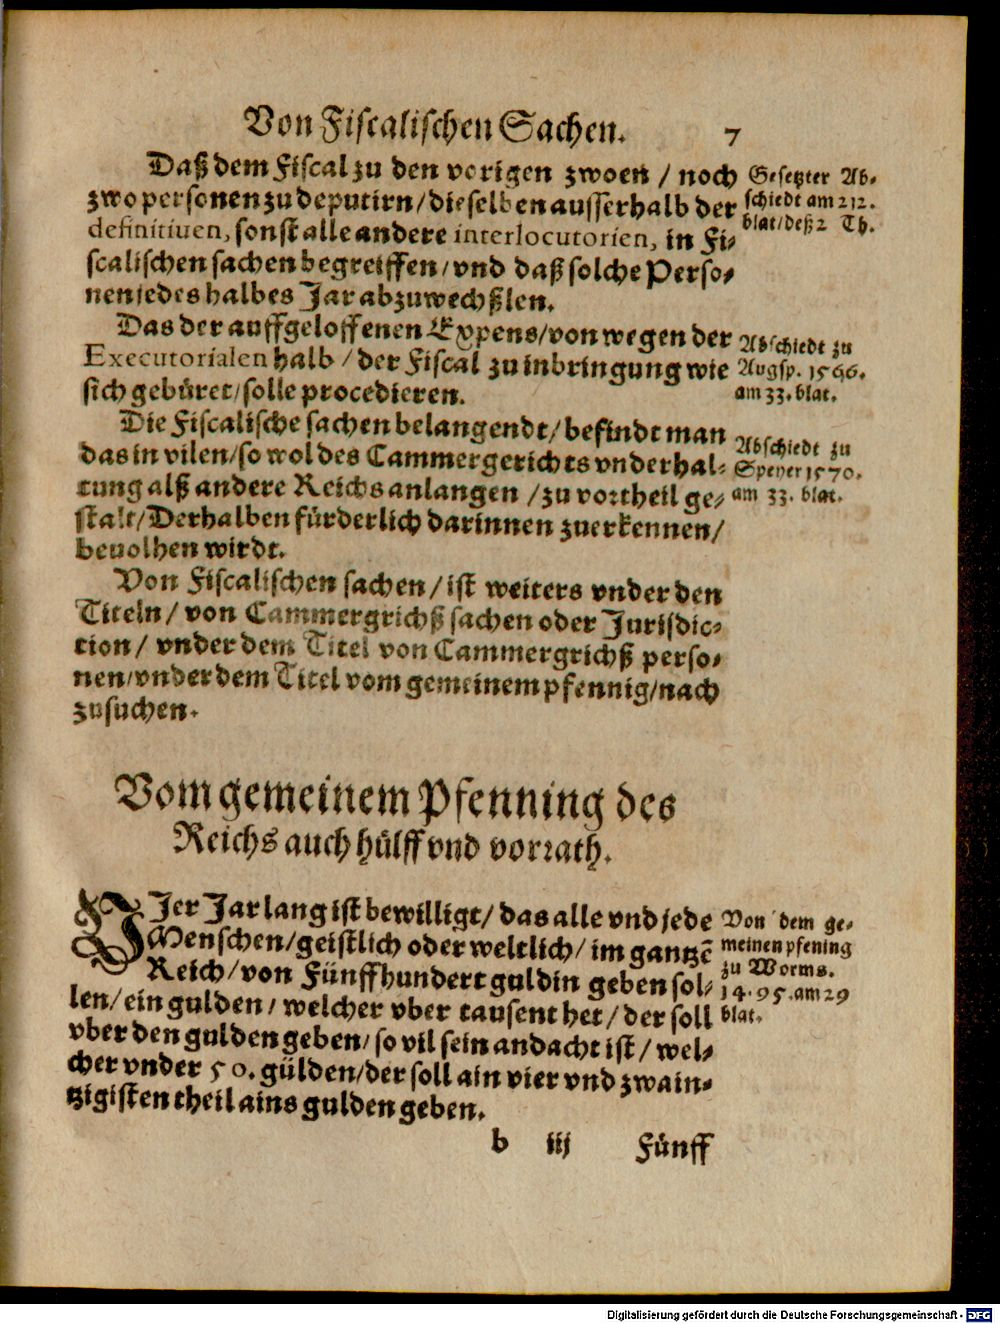 Von Fiscalischen Sachen. 7
Daß dem Fiscal zu den vorigen zwoen / noch
zwo personen zu deputirn / dieselben ausserhalb der
definitiuen, sonst alle andere interlocutorien, in Fi-
scalischen sachen begreiffen / vnd daß solche Perso-
nen jedes halbes Jar abzuwechßlen.
Gesetzter Ab-
schiedt am 212.
blat / deß 2 Th.
Das der auffgeloffenen Expens / von wegen der
Executorialen halb / der Fiscal zu inbringung wie
sich gebüret / solle procedieren.
Abschiedt zu
Augsp. 1566.
am 33. blat.
Die Fiscalische sachen belangendt / befindt man
das in vilen / so wol des Cammergerichts vnderhal-
tung alß andere Reichs anlangen / zu vortheil ge-
stalt / Derhalben fürderlich darinnen zuerkennen /
beuolhen wirdt.
Abschiedt zu
Speyer 1570.
am 33. blat.
Von Fiscalischen sachen / ist weiters vnder den
Titeln / von Cammergrichß sachen oder Jurisdic-
tion / vnder dem Titel von Cammergrichß perso-
nen / vnder dem Titel vom gemeinem pfennig / nach
zusuchen.
Vom gemeinem Pfenning des
Reichs auch hülff vnd vorrath.
VJer Jar lang ist bewilligt / das alle vnd jede
Menschen / geistlich oder weltlich / im gantzẽ
Reich / von Fünffhundert guldin geben sol-
len / ein gulden / welcher vber tausent het / der soll
vber den gulden geben / so vil sein andacht ist / wel-
cher vnder 50. gülden / der soll ain vier vnd zwain-
tzigisten theil ains gulden geben.
Von dem ge-
meinen pfening
zu Worms.
14.95. am 29
blat.
b iij Fünff
Digitalisierung gefördert durch die Deutsche Forschungsgemeinschaft - DFG